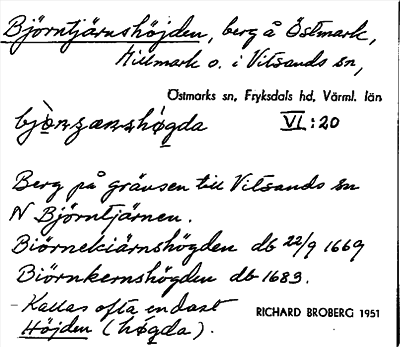 Björntjärnshöjden, berg å Östmark,
Millmark o. i Vitsands sn,
Östmarks sn, Fryksdals hd, Värml. län
VI:20
Berg på gränsen till Vitsands sn
N Björntjärnen.
Biörnekiärnshögden db 22/9 1669
Biörnkernshögden db 1683.
- Kallas ofta endast
Höjden (høgda).
RICHARD BROBERG 1951